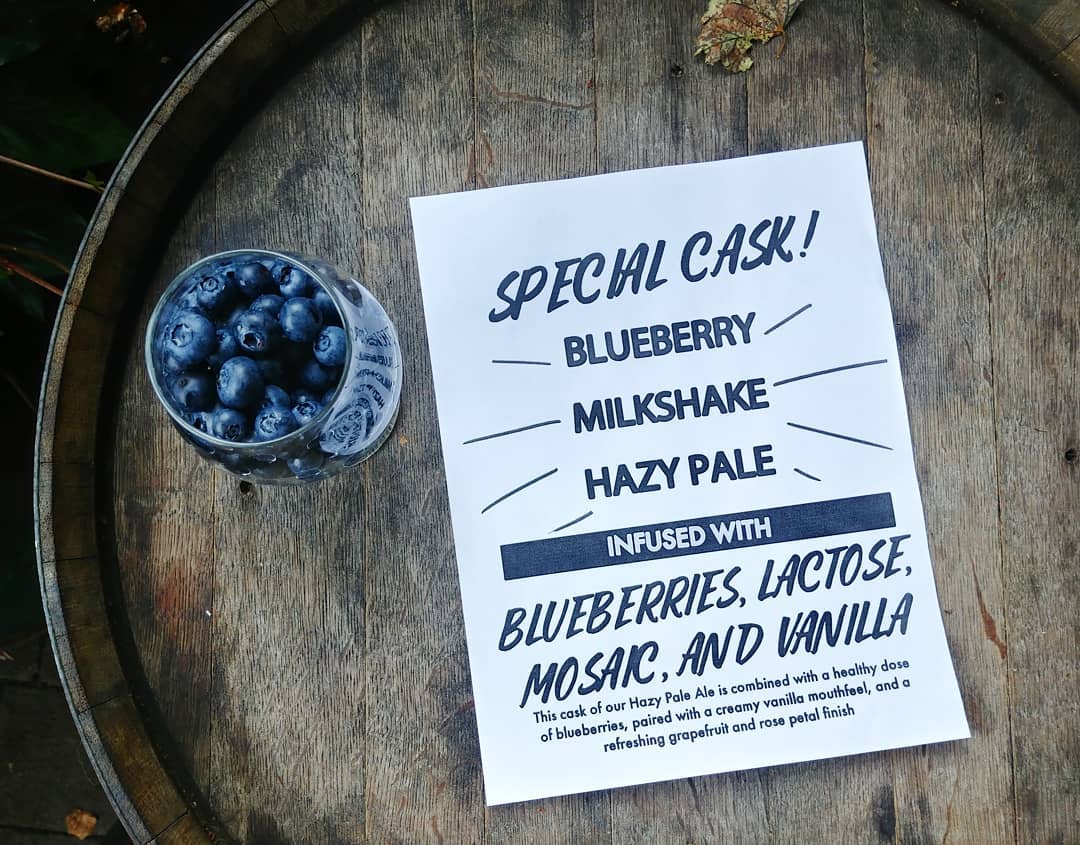 SPECIAL CASK!
BLUEBERRY
MILKSHAKE
HAZY PALE
INFUSED WITH
BLUEBERRIES, LACTOSE,
MOSAIC, AND VANILLA
This cask of our Hazy Pale Ale is combined with a healthy dose
of blueberries, paired with a creamy vanilla mouthfeel, and a
refreshing grapefruit and rose petal finish